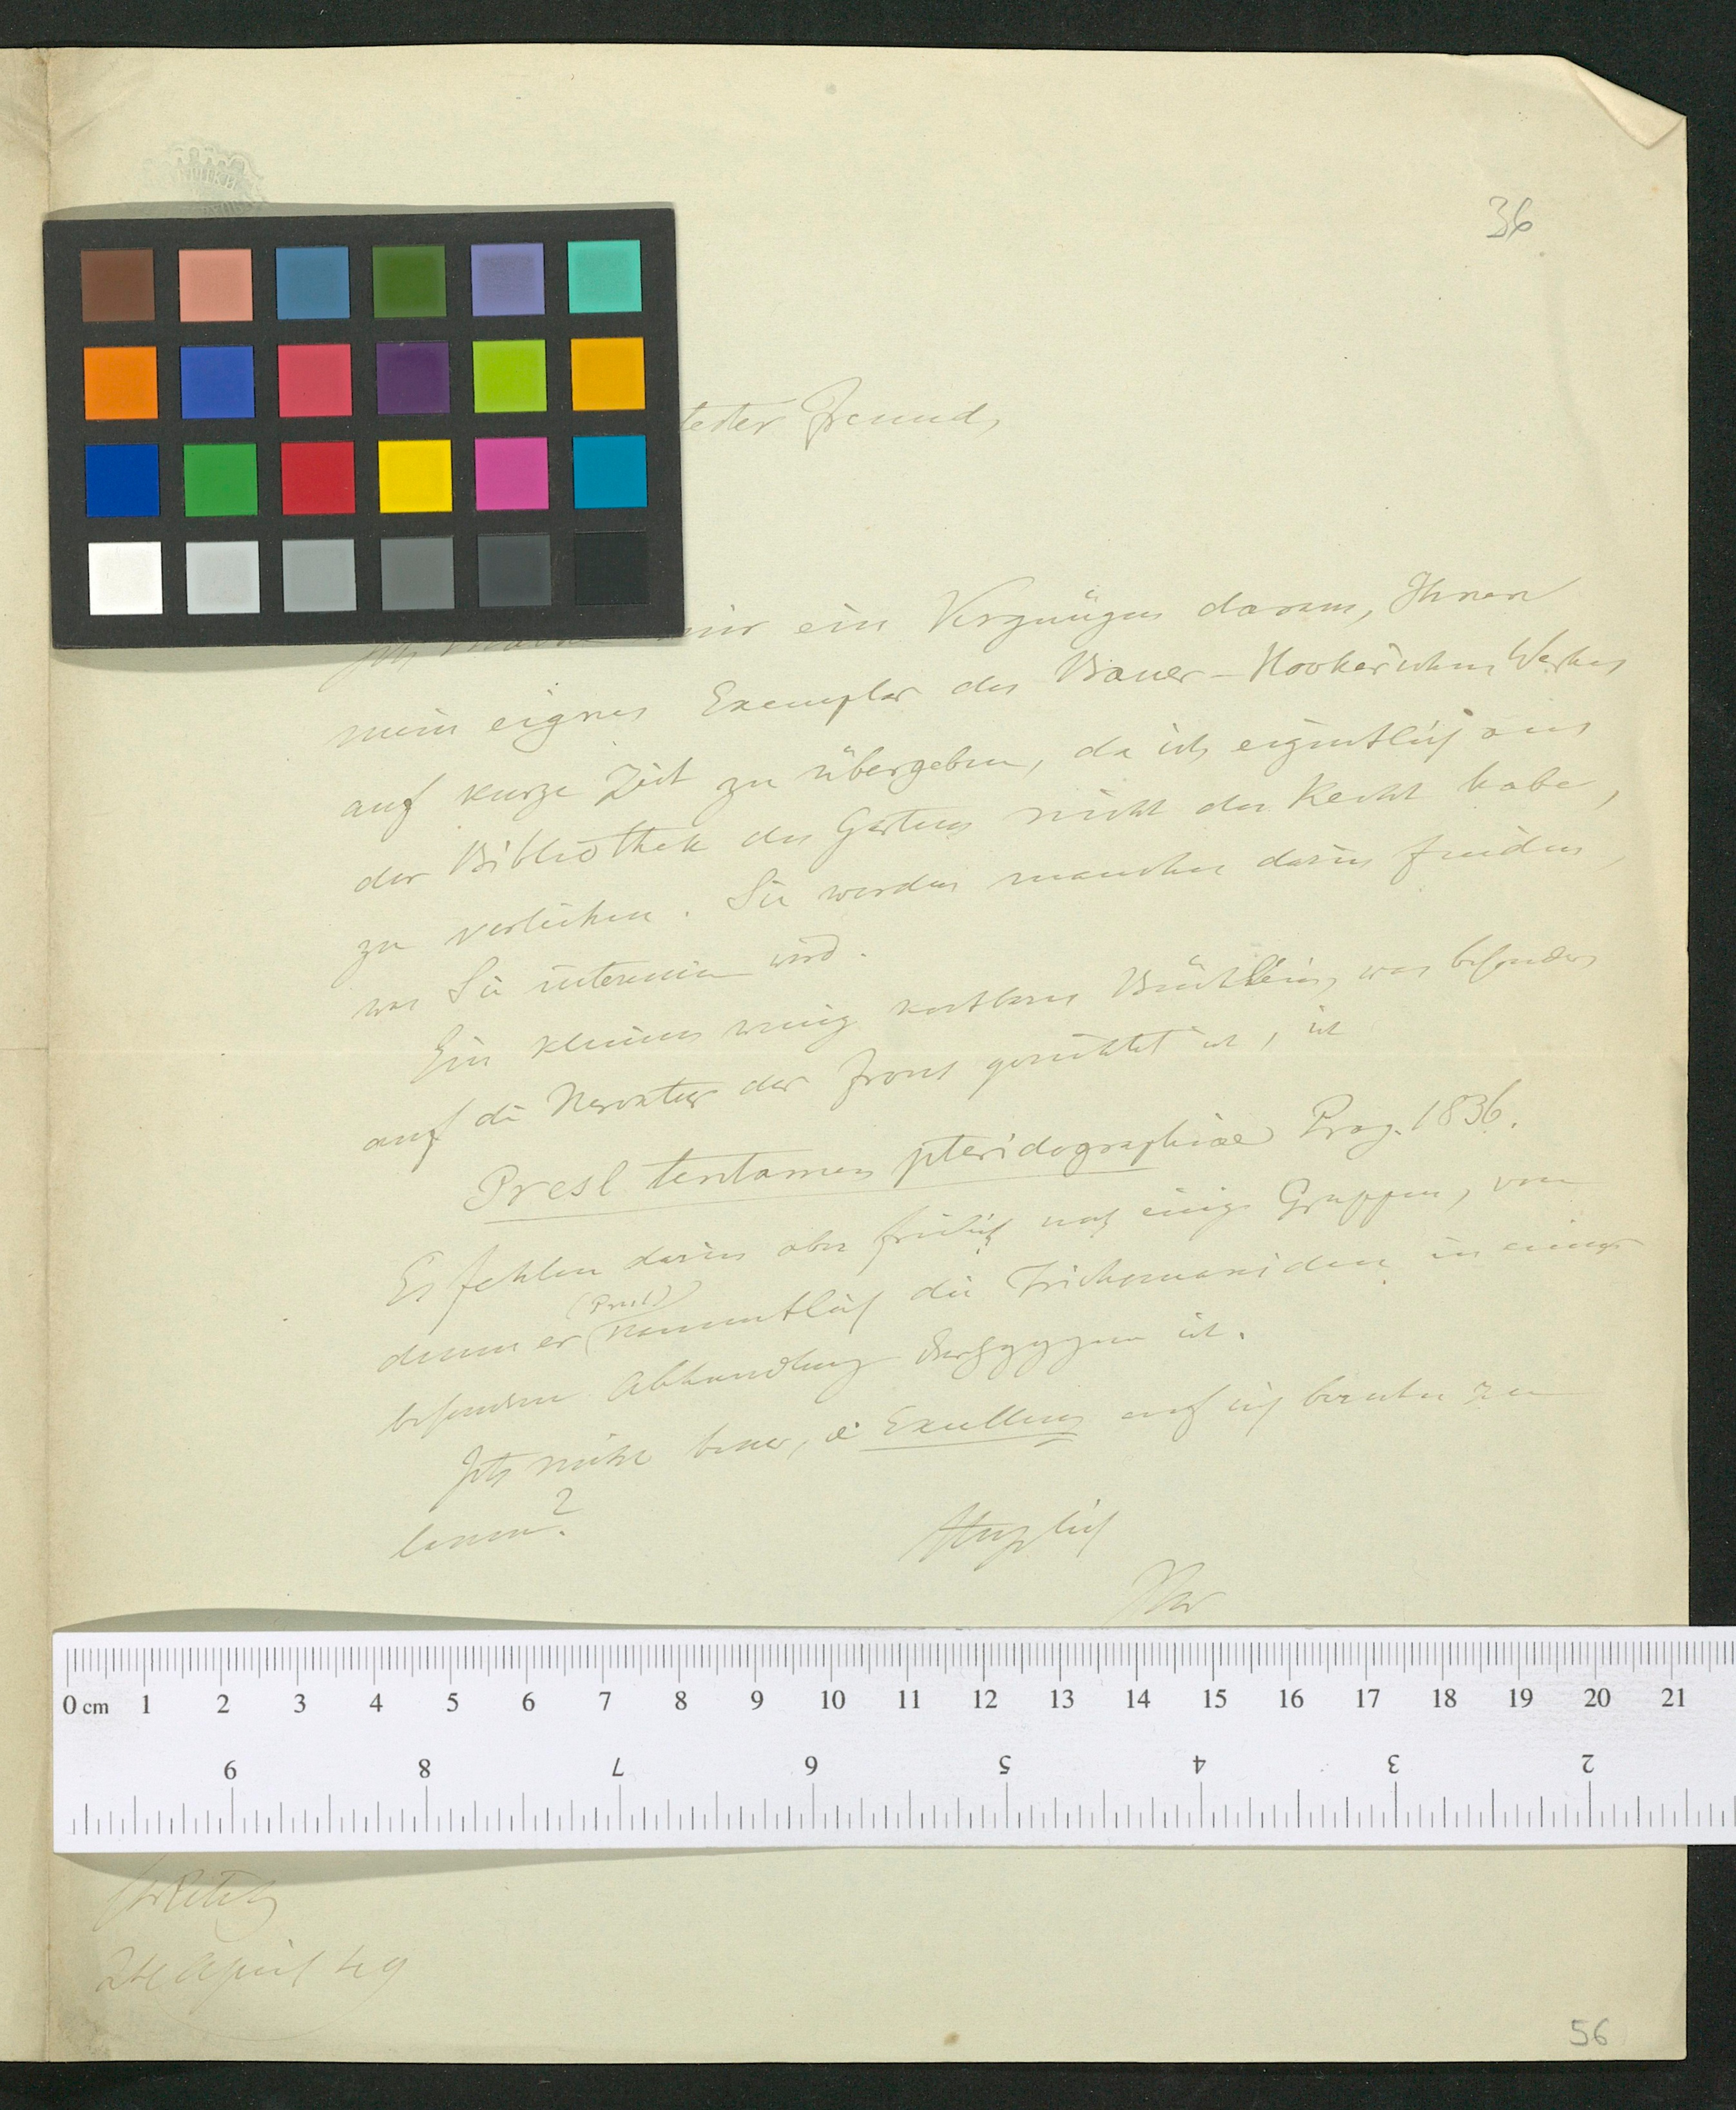 36
tester Freund,
mir ein Vergnügen daraus, Ihnen
mein eignes Exemplar des Bauer-Hooker'schen Werkes
auf kurze Zeit zu übergeben, da ich eigentlich aus
der Bibliothek des Gartens nicht das Recht habe,
zu verleihen. Sie werden manches darin finden,
was Sie interessiren wird.
Ein kleines wenig kostbares Büchlein, was besonders
auf die Nervatur der Frons gerichtet ist, ist
Presl tentamen pteridographiae Prag. 1836.
Es fehlen darin aber freilich noch einige Gruppen, von
(Presl)
denen er namentlich die Trichomaniden in einer
besondern Abhandlung ist.
nicht besser, die Excellenz auf sich beruhen zu
lassen?
24 April 49
0 cm 1 2 3 4 5 6 7 8 9 10 11 12 13 14 15 16 17 18 19 20 21
9 8 7 6 5 4 3 2
56